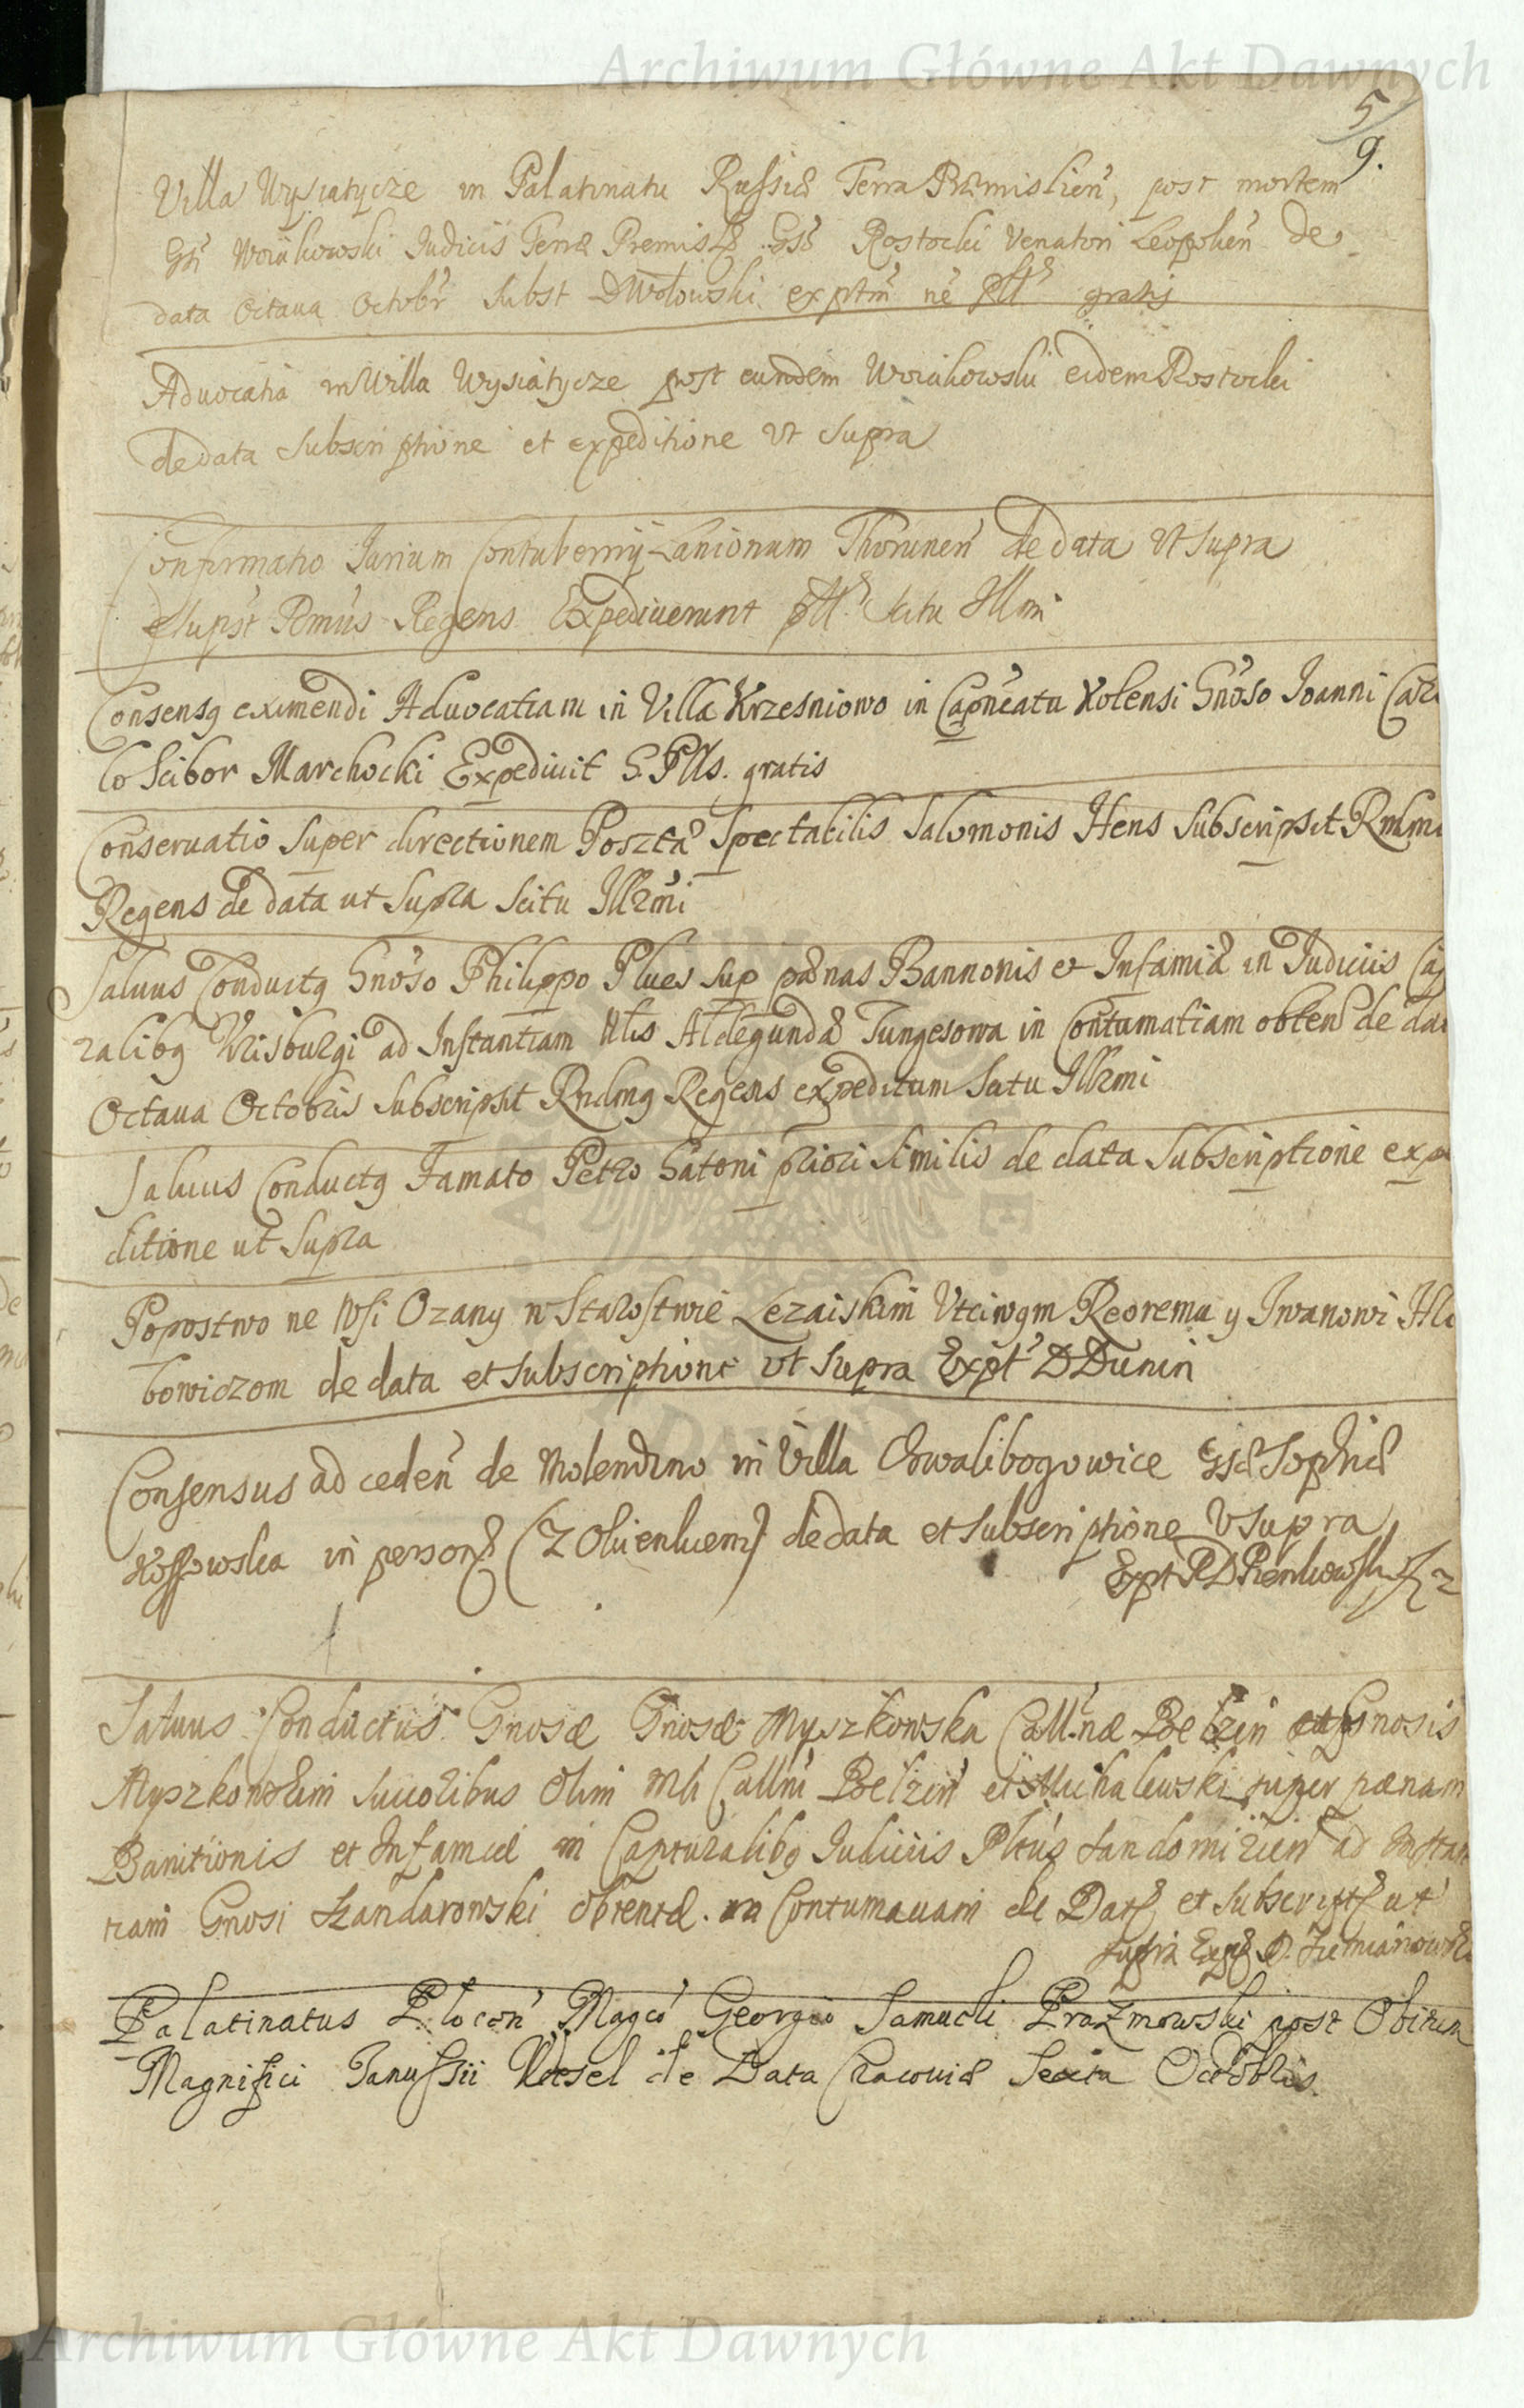 Archiwum Główne Akt Dawnych
5
9.
Villa Wysiatycze in Palatinatu Russiæ Terra Præmislien̄, post mortem
Gsi Woiakowski Iudicis Terræ Premisl. Gso Rostocki Venatori Leopolien̄ de
data Octaua Octobr̄ Subst D Wolowski exptm̄ ne pttȩ gratis
Aduocatia in Villa Wysiatycze post eundem Woiakowski eidem Rostocki
de data Subscriptione et expeditione Vt Supra
Confirmatio Iurium Contubernij Lanionum Thorunen̄ de data Vt Supra
Rmūs Regens Expediuerunt Scitu Illmi
Consensq eximendi Aduocatiam in Villa Krzesniowo in Capneatu Kolensi Gnōso Joanni Caro
lo Scibor Marchocki Expediuit S. Plls. gratis
Conseruatio Super directionem Poszta Spectabilis Salomonis Hens Subscripsit Rndmq
Regens de data ut Supra Scitu Illrmi
Saluus Conductq Gnōso Philippo Plues Sup pænas Bannonis et Infamiæ in Judiciis Cap
ralibq Krisburgi ad Instantiam Nlis Aldegundæ Tungesowa in Contumatiam obten̄ de dat
Octaua Octobris Subscripsit Rndmq Regens expeditum Scitu Illrmi
Saluus Conductq Famato Petro Gatoni priori Similis de data Subscriptione expe
ditione ut Supra
Popostwo ne Wsi Ozany w Starostwie Lezaiskim Vtciwym Reorema y Iwanowi Hle
bowiczom de data et Subscriptione Vt Supra Expt D Dunin
Consensus ad ceden̄ de Molendino in Villa Chwalibogowice Gsæ Sophiæ
Kossowska in person̄ (Z Oluienluem) de data et Subscriptione V Supra
Expt R D Pienkowski
Saluus Conductus Gnosæ Gnosæ Myszkowska CAll.næ Belzen̄ et Gnosis
Myszkowskim Sucoribus Olim Mli Callni Belzen̄ et Michalewski super pænam
Banitionis et Infamiæ in Capturalibq Iudiciis Pltus Sandomirien̄ ad Instan
tiam Gnosi Szandarowski obtentæ in Contumatiam de Data et subscriptȩ ut
supra Expt D. Ziemianowski
Palatinatus Plocen̄ Magco Georgio Samueli Prazmowski post Obitum
Magnifici Janussii Wesel de Data Cracouiæ Sexta Octobris
Archiwum Główne Akt Dawnych